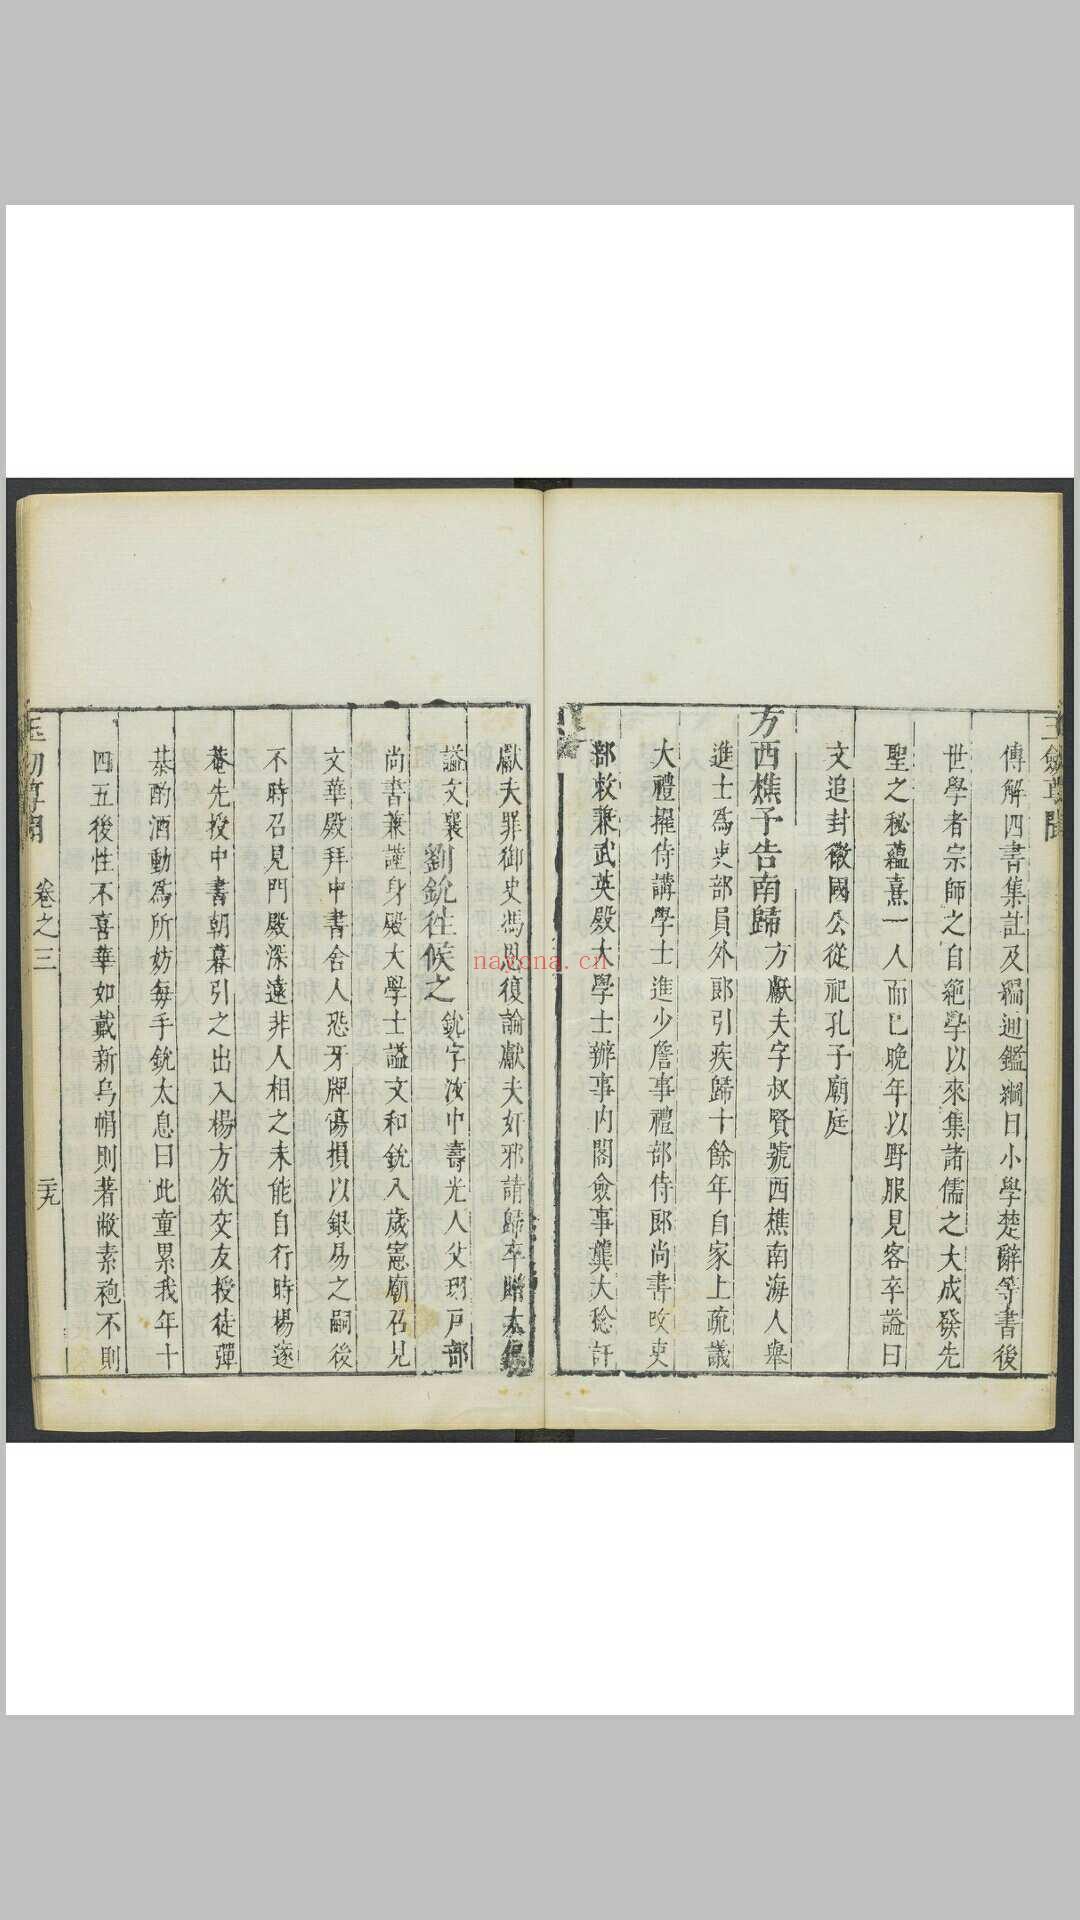 傳解四書集註及編通鑑綱目小學楚辭等書後
世學者宗師之自絕學以來集諸儒之大成發先
聖之秘蘊熹一人而已晚年以野服見客卒謚曰
文追封徽國公從祀孔子廟庭
方西樵予告南歸方獻夫字叔賢號西樵南海人舉
進士爲吏部員外郎引疾歸十餘年自家上疏議
大禮擢侍講學士進少詹事禮部侍郎尚書攺吏
部敕兼武英殿大學士辦事内閣僉事龔大稔訐
獻夫罪御史馮恩復論獻夫奸邪請歸卒贈太保
謚文襄劉鈗往候之鈗字汝中壽光人父珝戸部
尚書兼謹身殿大學士謚文和鈗八歲憲廟召見
文華殿拜中書舍人恐牙牌傷損以銀易之嗣後
不時召見門殿深遠非人相之未能自行時楊遂
菴先投中書朝暮引之出入楊方欲交友授徒彈
棊酌酒動爲所妨每手鈗太息曰此童累我年十
四五後性不喜華如戴新烏帽則著敝素袍不則
卷之三
二十九
nayona.cn